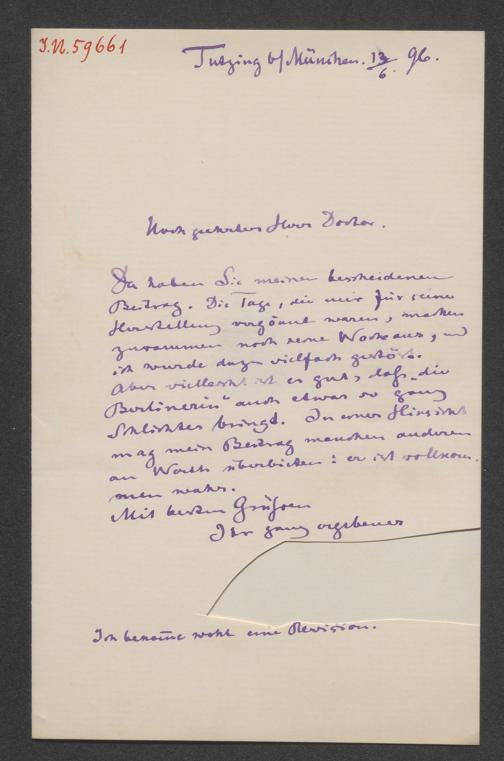 I.N. 59661
Tutzing b/München. 13/6. 96.
Hoch geehrter Herr Doctor.
Da haben Sie meinen bescheidenen
Beitrag. Die Tage, die mir für seine
Herstellung vergönnt waren, machen
zusammen noch keine Woche aus, und
ich wurde dazu vielfach gestört.
Aber vielleicht ist es gut, daß „die
Berlinerin“ auch etwas so ganz
Schlichtes bringt. In einer Hinsicht
mag mein Beitrag manchen anderen
an Werth überbieten: er ist vollkom-
men wahr.
Mit besten Grüßen
Ihr ganz ergebener
Ich bekomme wohl eine Revision.